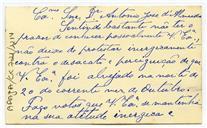 Exmo. Snr. Dr. Antonio José d'Almeida
Sentindo bastante não ter o
prazer de conhecer pessoalmente V. Exa.
não deixo de protestar energicamente
contra o desacato e perseguição de que
V. Exa. foi alvejado na noite de
20 do corrente mez de Outubro.
Faço votos que V. Exa. se mantenha
na sua atitude energica e